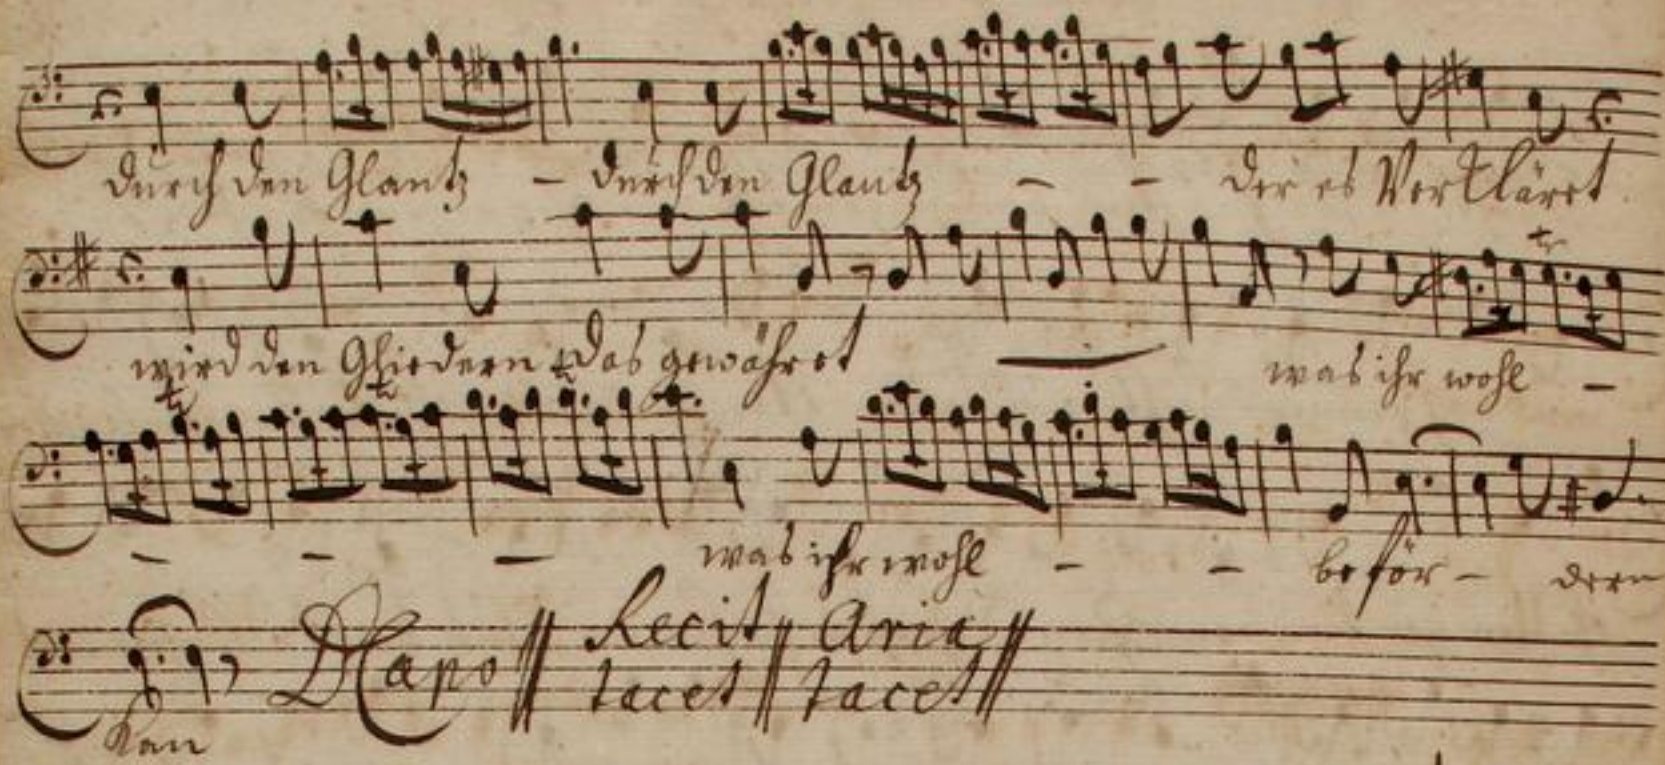 durch den Glantz - durch den Glantz - - der es Verklärt.
wird den Gliedern das gewähret was ihr wohl -
- - - was ihr wohl - - beför - dern
DCapo || Recit || Aria ||
tacet || tacet ||
kan